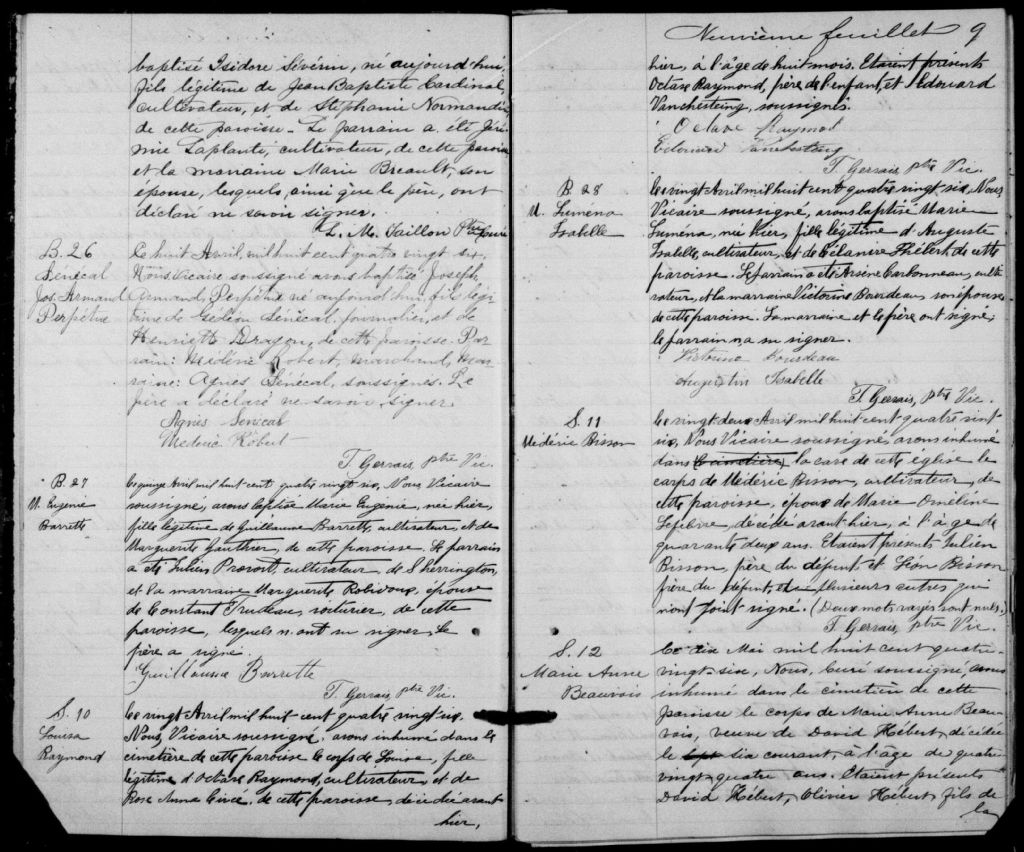 baptisé Isidore Sévérin, né aujourd'hui,
fils légitime de Jean Baptiste Cardinal,
cultivateur, et de Stéphanie Normandin
de cette paroisse - Le parrain a été Jéré-
mie Laplante, cultivateur, de cette paroisse
et la marraine Marie Breault, son
épouse, lesquels, ainsi que le père, ont
déclaré ne savoir signer.
L. M. Taillon Ptre Curé
B. 26
Sénécal
Jos. Armand
Perpétue
Ce huit Avril, mil huit cent quatre vingt six,
Nous Vicaire soussigné avons baptisé Joseph,
Armand, Perpétue né aujourd'hui, fils légi-
time de Gédéon Sénécal, journalier, et de
Henriette Dragon, de cette paroisse. Par-
rain: Médéric Robert, marchand, mar-
raine: Agnes Sénécal, soussignés. Le
père a déclaré ne savoir signer.
Agnès Senécal
Mederic Robert
T. Gervais, ptre Vic.
B. 27
M. Eugenie
Barrette
Ce quinze Avril mil huit cent quatre vingt six, Nous Vicaire
soussigné, avons baptisé Marie Eugenie, née hier,
fille légitime de Guillaume Barrette, cultivateur, et de
Marguerite Gauthier, de cette paroisse. Le parrain
a été Julien Provost, cultivateur, de Sherrington,
et la marraine Marguerite Robidoux, épouse
de Constant Trudeau, voiturier, de cette
paroisse, lesquels n'ont su signer. Le
père a signé.
Guillaume Barrette
T. Gervais, ptre Vic.
S. 10
Louisa
Raymond
Ce vingt Avril mil huit-cent quatre vingt six.
Nous, Vicaire soussigné, avons inhumé dans le
cimetière de cette paroisse le corps de Louisa, fille
légitime d'Octave Raymond, cultivateur, et de
Rose Anna Circé, de cette paroisse, décédée avant
hier,
Neuvième feuillet 9
hier, à l'âge de huit mois. Etaient présents
Octave Raymond, père de l'enfant, et Edouard
Vanchesteing, soussignés.
Octave Raymond
Edouard
T. Gervais ptre Vic.
B. 28
M. Luména
Isabelle
Ce vingt Avril mil huit cent quatre vingt six, Nous
Vicaire soussigné, avons baptisé Marie
Luména, née hier, fille légitime d'Auguste
Isabelle, cultivateur, et de Célanire Hébert, de cette
paroisse. Le parrain a été Arsène Carbonneau, culti-
vateur, et la marraine Victorine Bourdeau son épouse
de cette paroisse. La marraine et le père ont signé;
le parrain n'a su signer.
Victorine Bourdeau
Augustin Isabelle
T. Gervais, ptre Vic.
S. 11
Médéric Bisson
Ce vingt-deux Avril mil huit cent quatre vingt
six, Nous Vicaire soussigné, avons inhumé
dans le cimetière, la cave de cette église le
corps de Médéric Bisson, cultivateur, de
cette paroisse, époux de Marie Oméline
Lefebvre, décédé avant hier, à l'âge de
quarante deux ans. Etaient présents Julien
Bisson, père du défunt et Léon Bisson
frère du défunt, et plusieurs autres qui
n'ont point signé. (Deux mots rayés sont nuls.)
T. Gervais, ptre Vic.
S. 12
Marie Anne
Beauvais
Ce dix Mai mil huit cent quatre-
vingt-six, Nous, Curé soussigné, avons
inhumé dans le cimetière de cette
paroisse le corps de Marie Anne Beau-
vais, veuve de David Hébert, décédée
le six courant, à l'âge de quatre-
vingt-quatre ans. Etaient présents
David Hébert, Olivier Hébert, fils de
la